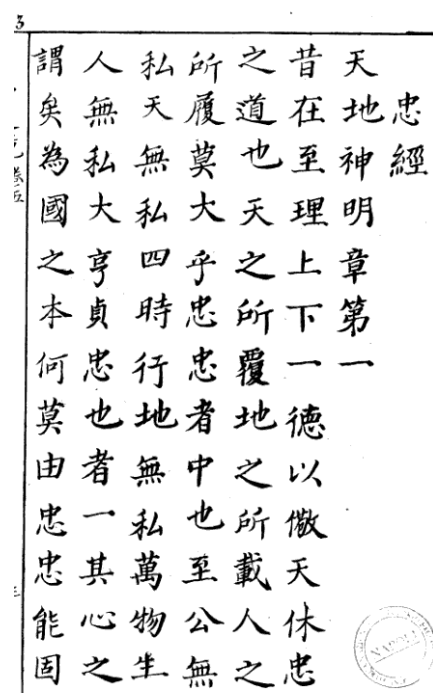 3
忠經
天地神明章第一
昔在至理上下一德以徵天休忠
之道也天之所覆地之所載人之
所履莫大乎忠忠者中也至公無
私天無私四時行地無私萬物生
人無私大亨貞忠也者一其心之
謂矣為國之本何莫由忠忠能固
卷五
NAPOLI